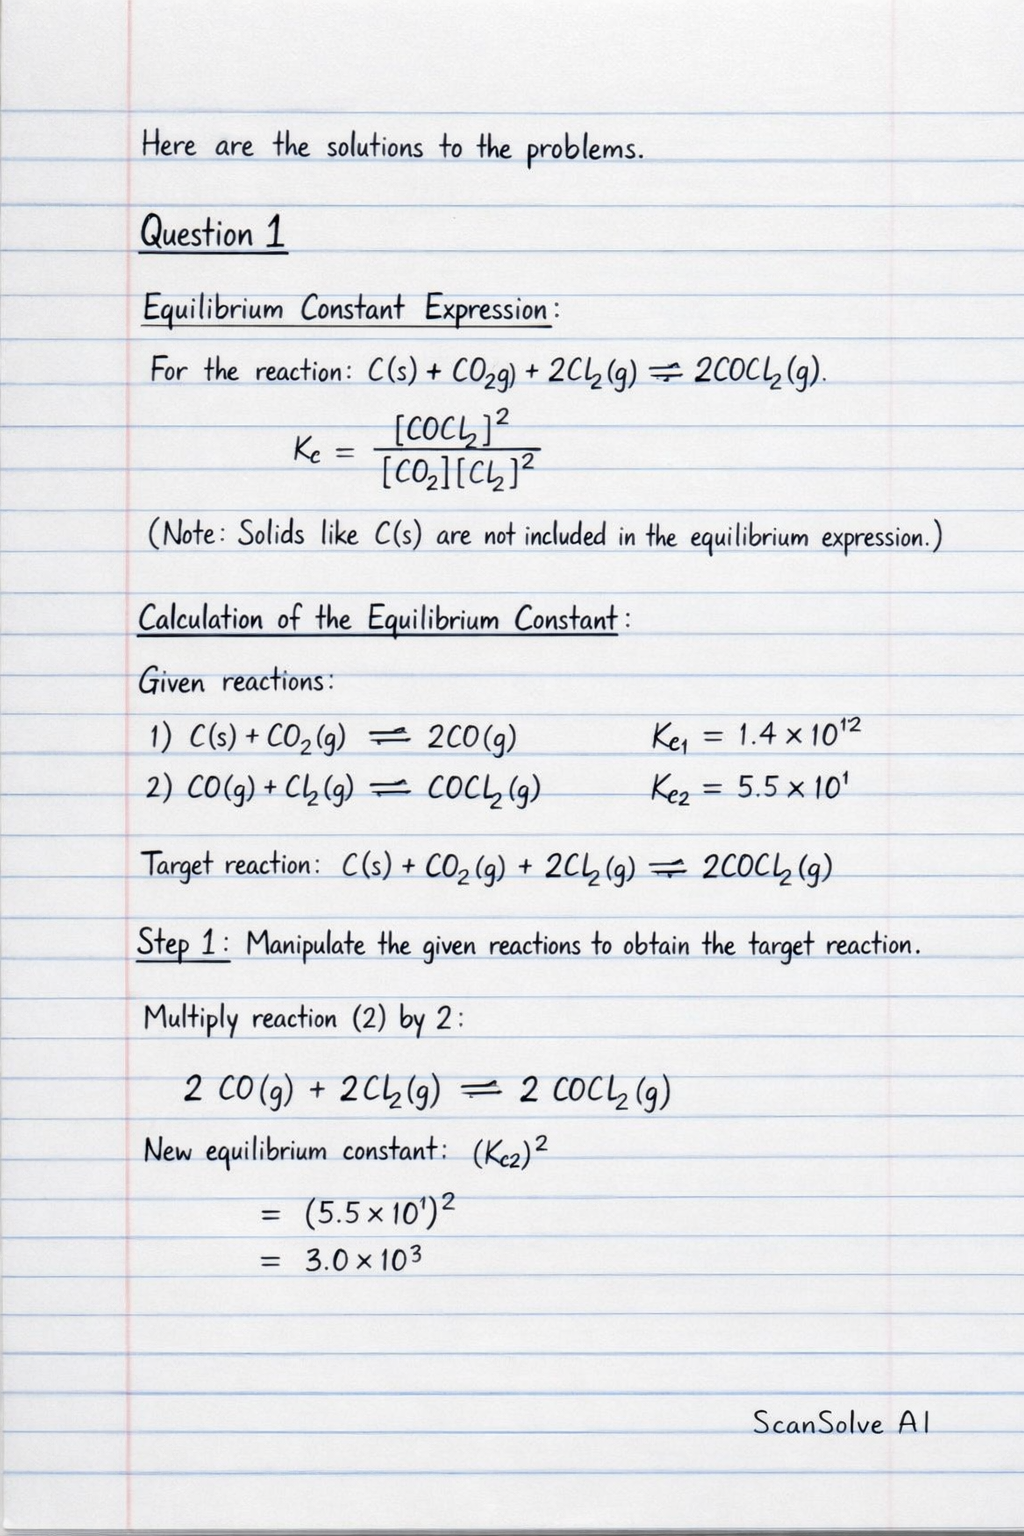 Here are the solutions to the problems.
Question 1
Equilibrium Constant Expression:
For the reaction: C(s) + CO₂g) + 2Cl₂(g) ⇌ 2COCl₂(g).
Kc = [COCl₂]² / [CO₂][Cl₂]²
(Note: Solids like C(s) are not included in the equilibrium expression.)
Calculation of the Equilibrium Constant:
Given reactions:
1) C(s) + CO₂(g) ⇌ 2CO(g) Kc₁ = 1.4 × 10¹²
2) CO(g) + Cl₂(g) ⇌ COCl₂(g) Kc₂ = 5.5 × 10¹
Target reaction: C(s) + CO₂(g) + 2Cl₂(g) ⇌ 2COCl₂(g)
Step 1: Manipulate the given reactions to obtain the target reaction.
Multiply reaction (2) by 2:
2 CO(g) + 2Cl₂(g) ⇌ 2 COCl₂(g)
New equilibrium constant: (Kc₂)²
= (5.5 × 10¹)²
= 3.0 × 10³
ScanSolve AI